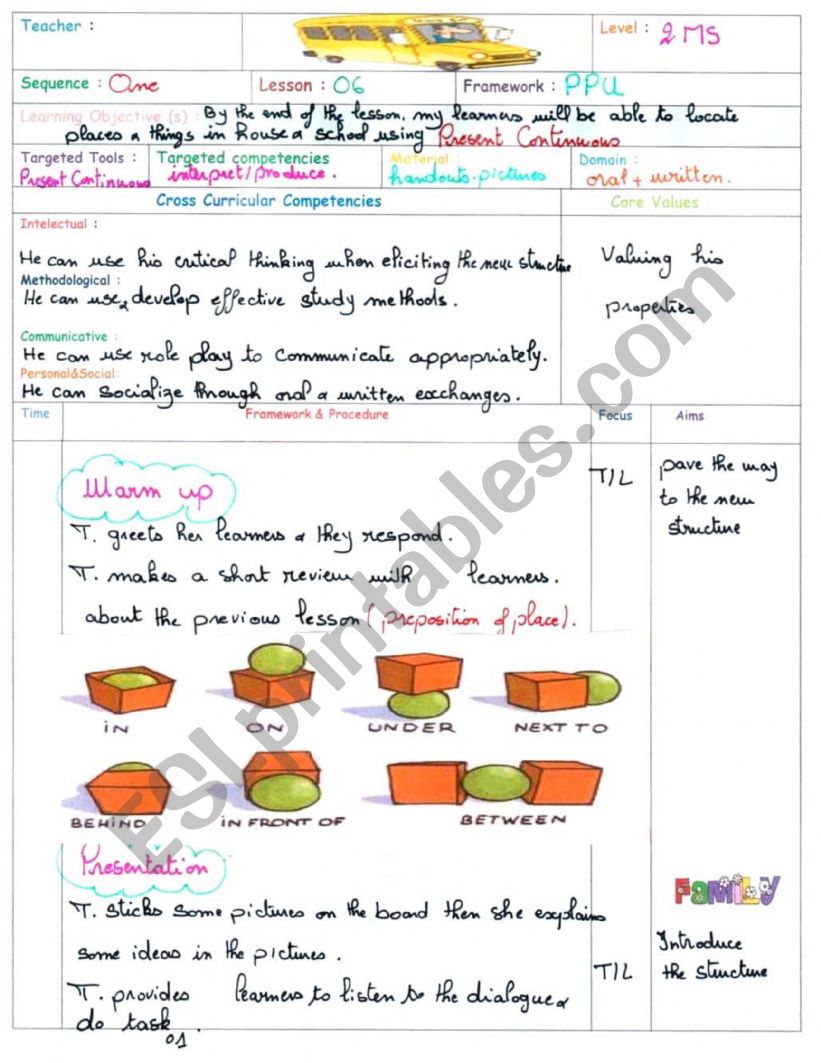 Teacher :
Level : 2MS
Sequence : One
Lesson : 06
Framework : PPU
Learning Objective (s) : By the end of the lesson, my learners will be able to locate
places & things in house & school using Present Continuous
Targeted Tools :
Present Continuous
Targeted competencies
interpret/produce.
Material :
handouts.pictures
Domain :
oral + written.
Cross Curricular Competencies
Core Values
Intelectual :
He can use his critical thinking when eliciting the new structure
Valuing his
properties
Methodological :
He can use, develop effective study methods.
Communicative :
He can use role play to communicate appropriately.
Personal&Social:
He can socialize through oral & written exchanges.
Time
Framework & Procedure
Focus
Aims
Warm up
T/L
pave the way
to the new
structure
T. greets her learners & they respond.
T. makes a short review with learners.
about the previous lesson (preposition of place).
IN
ON
UNDER
NEXT TO
BEHIND
IN FRONT OF
BETWEEN
Presentation
FAMILY
T. sticks some pictures on the board then she explains
some ideas in the pictures.
Introduce
the structure
T/L
T. provides learners to listen to the dialogue &
do task 01.
ESLprintables.com